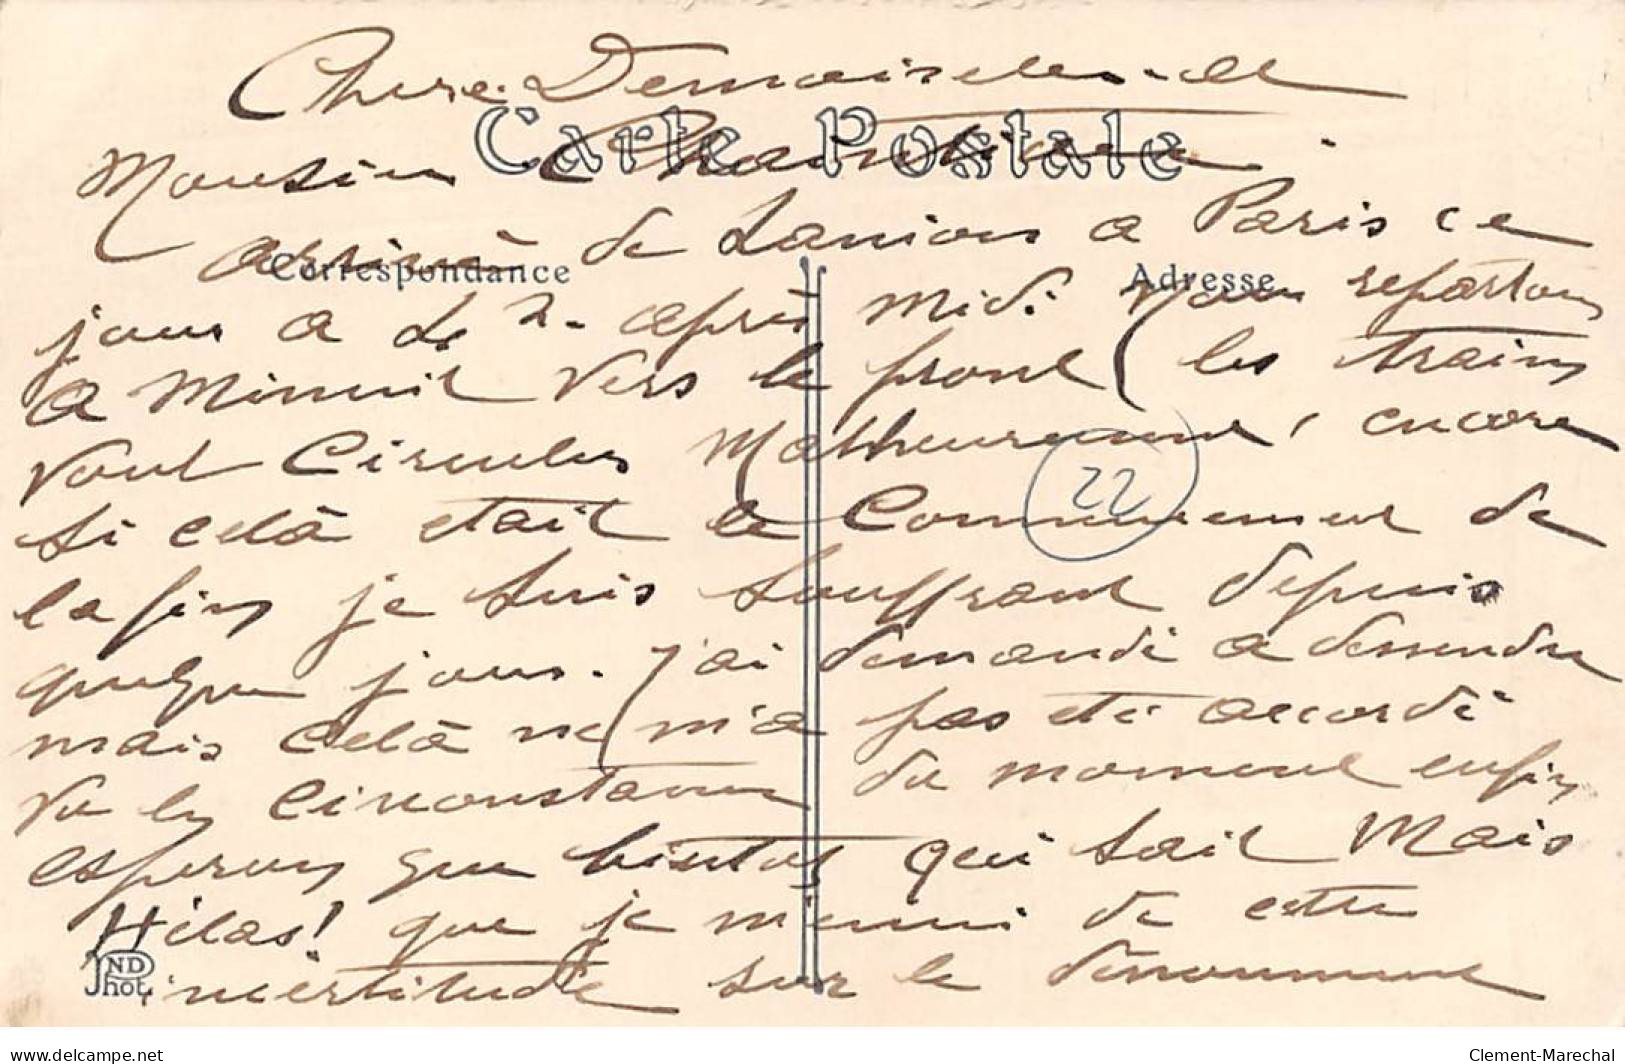 Chere Demoiselle et
Carte Postale
Monsieur
arrivé de Lanion a Paris ce
Correspondance
Adresse
jour a 2 après midi nous repartons
a Minuit vers le front les trains
vont Circuler Malheureument, encore
22
si celà etait le Commencement de
la fin je suis souffrant depuis
quelque jours. j'ai demandé a dessendre
mais celà ne m'a pas eté accordé
vu les Circonstances du moment enfin
esperons que bientot qui sait Mais
Hélas! que je m'ennui de cette
incertitude sur le dénoument
ND
Phot.
delcampe.net
Clement-Marechal